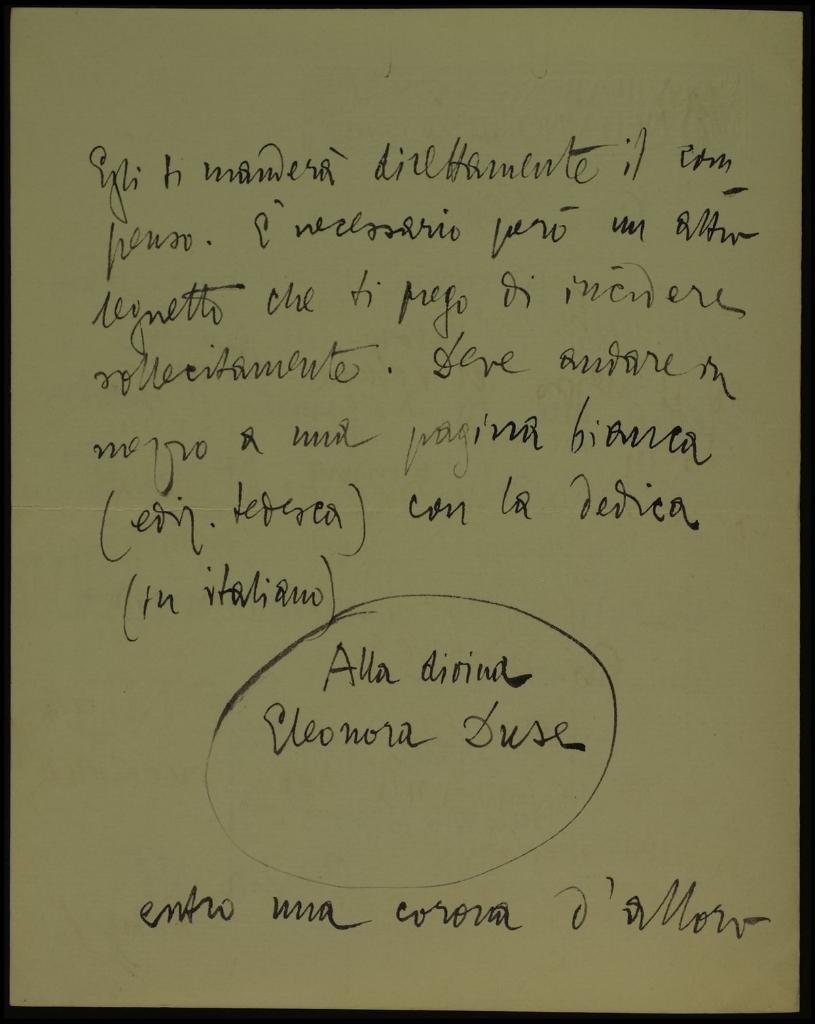 Egli ti manderà direttamente il com
penso. È necessario però un altro
legnetto che ti prego di incidere
sollecitamente. Deve andare in
mezzo a una pagina bianca
(ediz. tedesca) con la dedica
(in italiano)
Alla divina
Eleonora Duse
entro una corona d'alloro